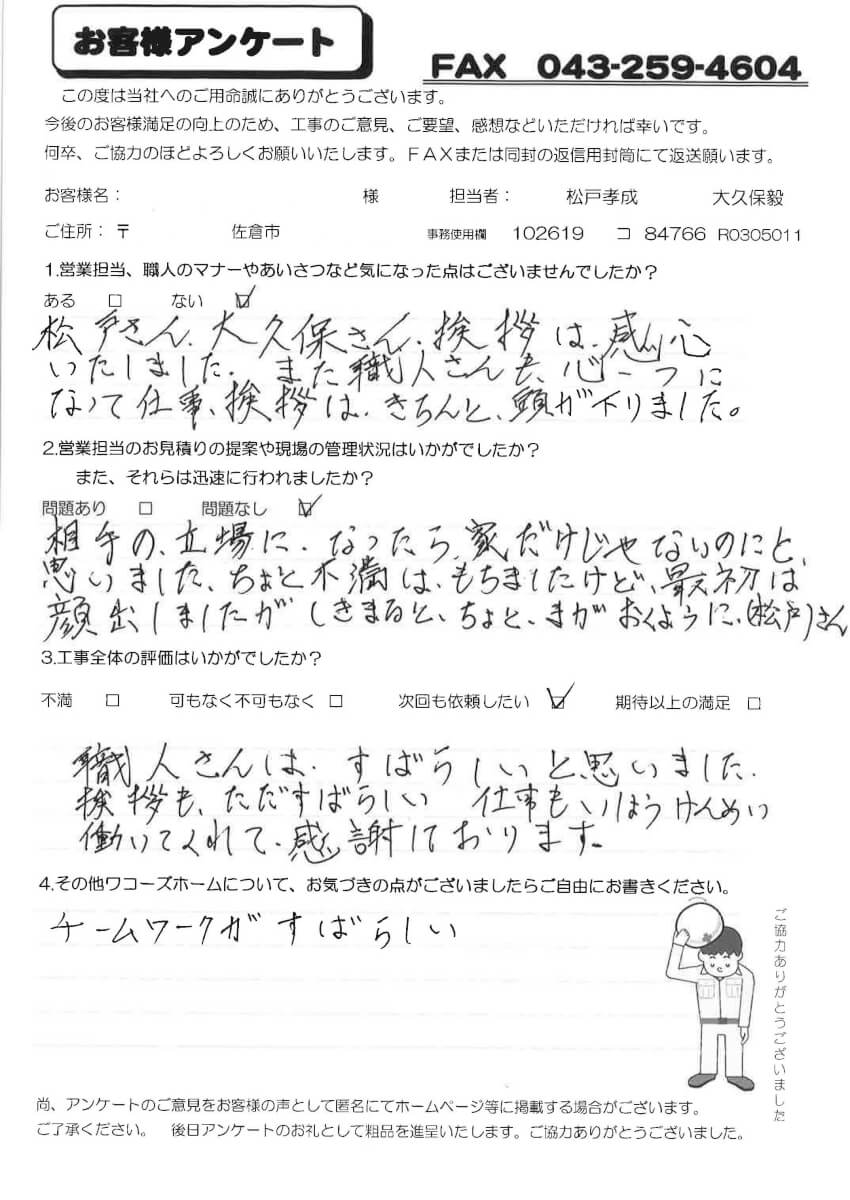 お客様アンケート
FAX 043-259-4604
この度は当社へのご用命誠にありがとうございます。
今後のお客様満足の向上のため、工事のご意見、ご要望、感想などいただければ幸いです。
何卒、ご協力のほどよろしくお願いいたします。FAXまたは同封の返信用封筒にて返送願います。
お客様名： 様 担当者： 松戸孝成 大久保毅
ご住所：〒 佐倉市 事務使用欄 102619 コ 84766 R0305011
1.営業担当、職人のマナーやあいさつなど気になった点はございませんでしたか？
ある □ ない ☑
松戸さん、大久保さん、挨拶は、感心
いたしました. また職人さんも、心一つに
なって仕事、挨拶は、きちんと、頭が下りました。
2.営業担当のお見積りの提案や現場の管理状況はいかがでしたか？
また、それらは迅速に行われましたか？
問題あり □ 問題なし ☑
相手の、立場に、なったら、家だけじゃないのにと、
思いました、ちょと不満は、もちましたけど、最初は
顔出しましたが しきまると、ちょと、まが おくように、(松戸)さん
3.工事全体の評価はいかがでしたか？
不満 □ 可もなく不可もなく □ 次回も依頼したい ☑ 期待以上の満足 □
職人さんは、すばらしいと思いました.
挨拶も、ただすばらしい 仕事もいしょうけんめい
働いてくれて、感謝しております。
4.その他ワコーズホームについて、お気づきの点がございましたらご自由にお書きください。
チームワークがすばらしい
ご協力ありがとうございました
尚、アンケートのご意見をお客様の声として匿名にてホームページ等に掲載する場合がございます。
ご了承ください。 後日アンケートのお礼として粗品を進呈いたします。ご協力ありがとうございました。